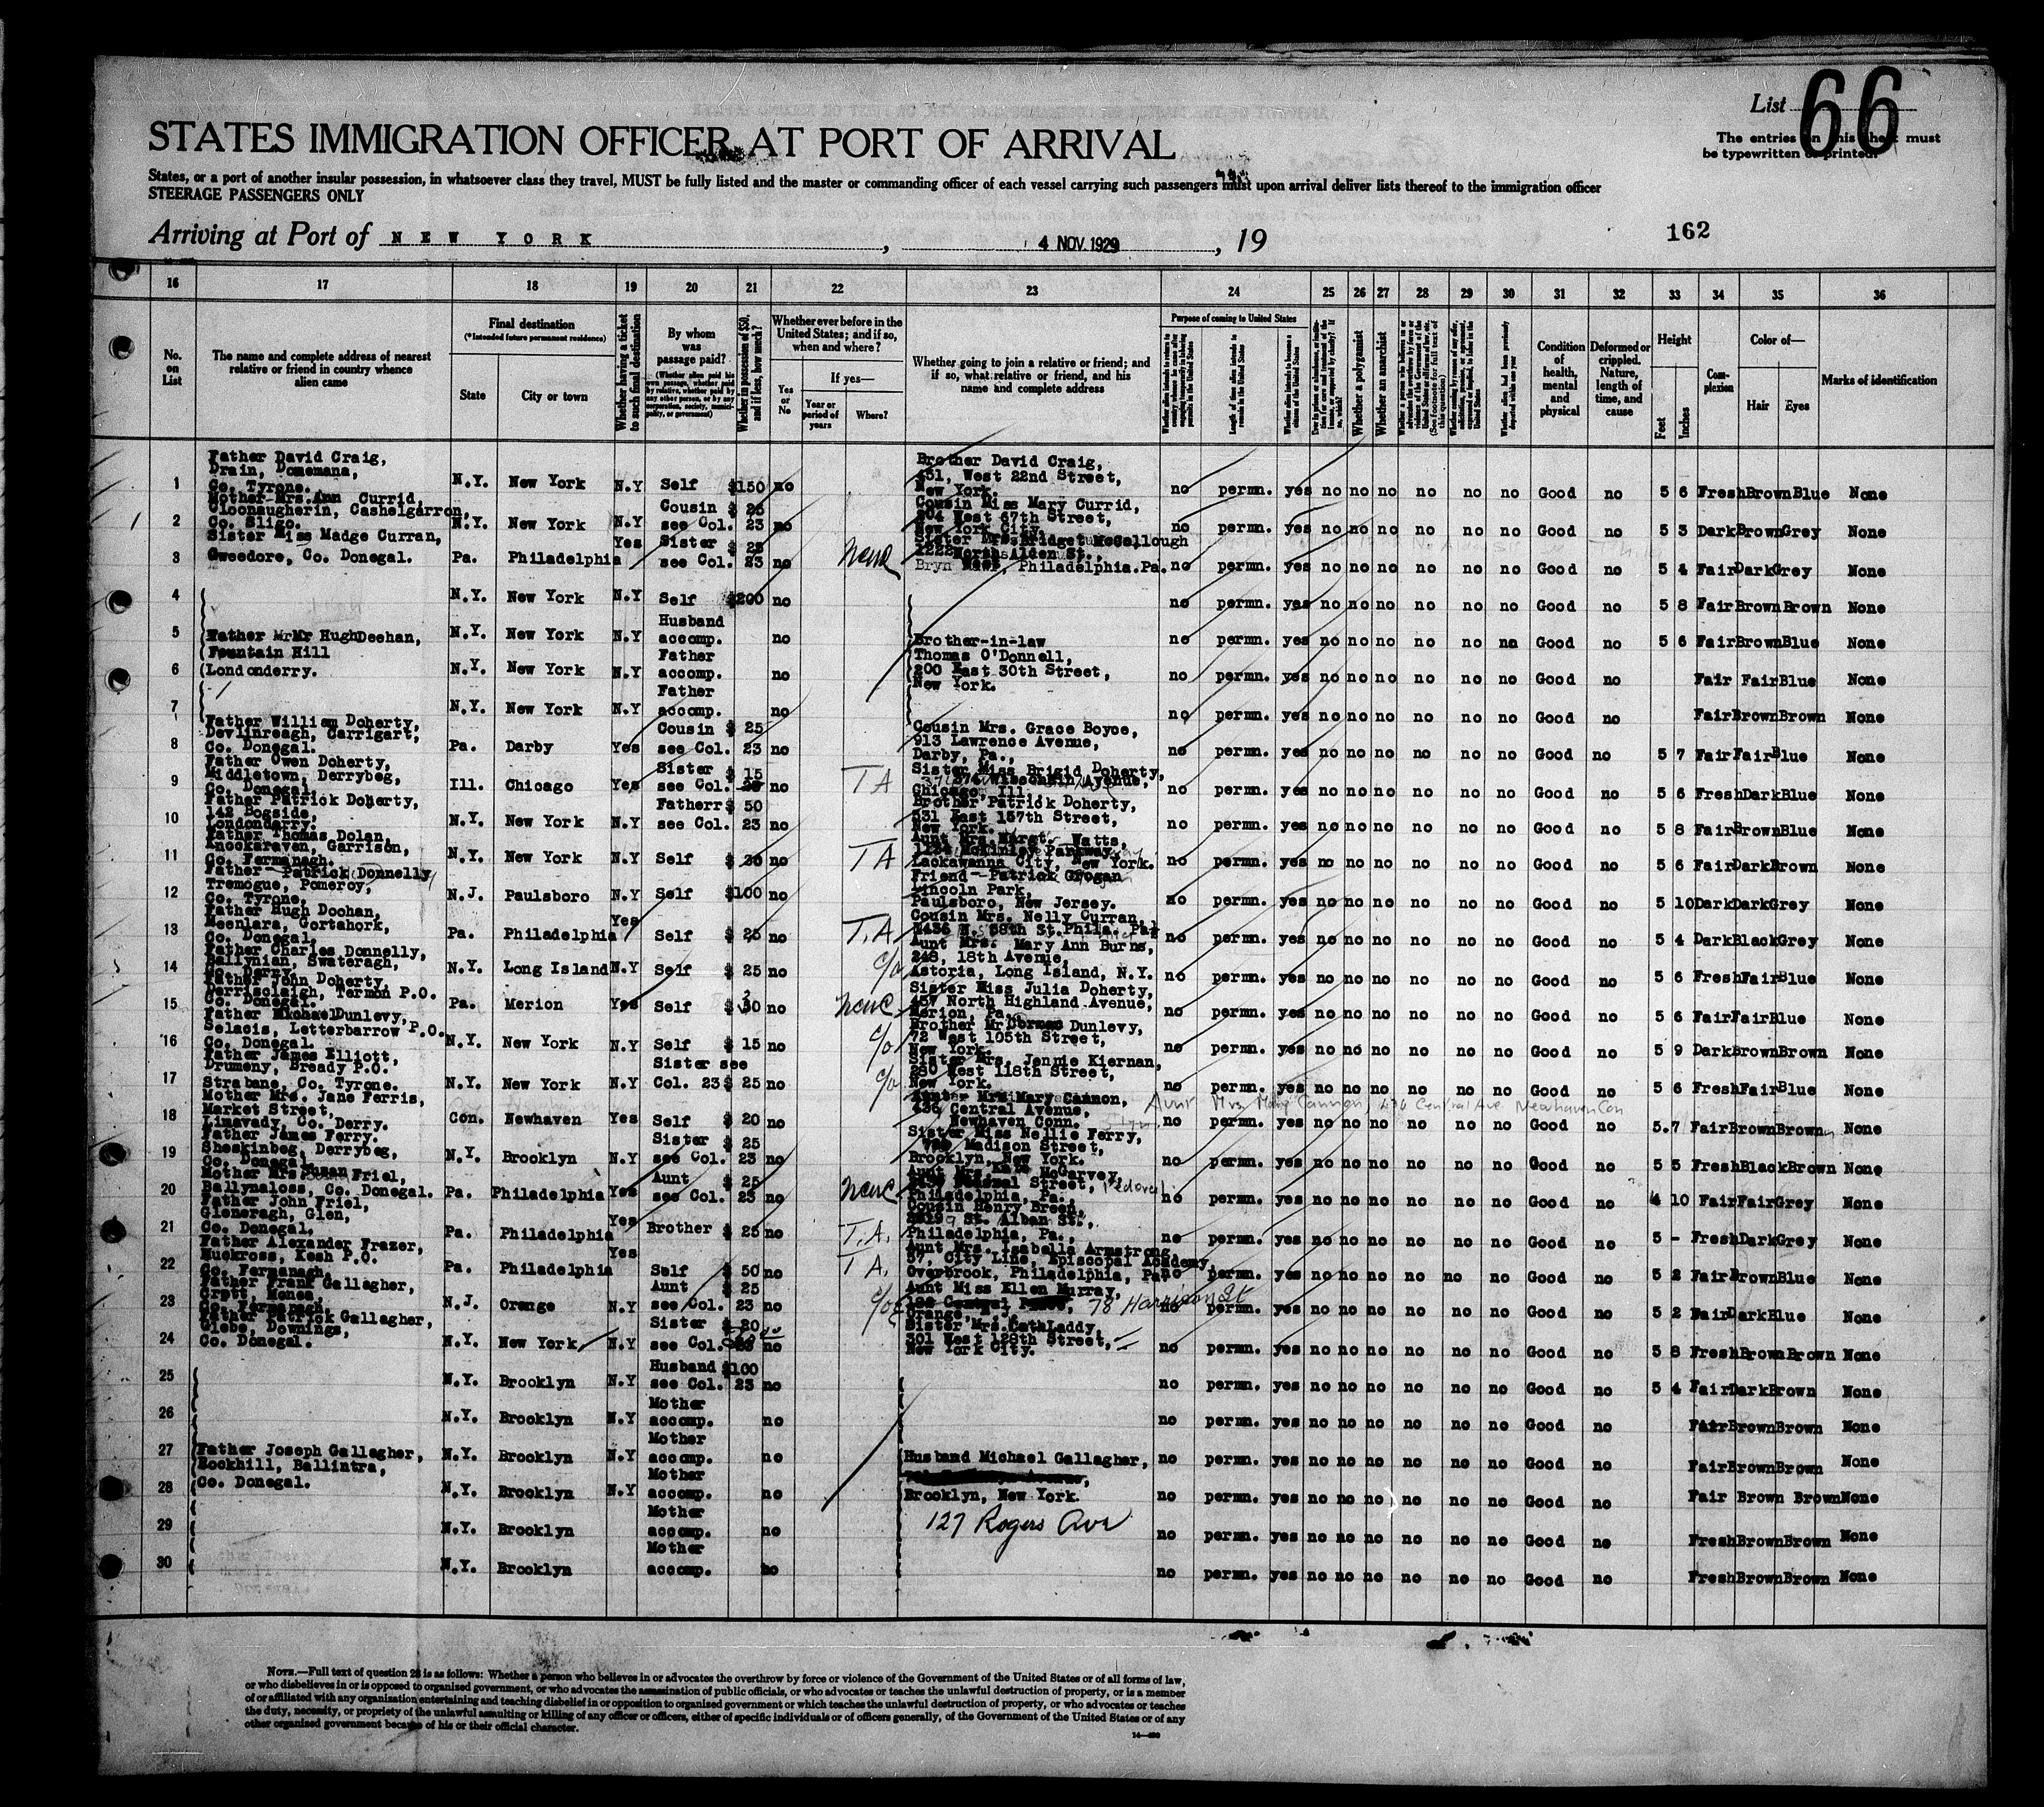 List 66
The entries on this sheet must
be typewritten or printed.
STATES IMMIGRATION OFFICER AT PORT OF ARRIVAL
States, or a port of another insular possession, in whatsoever class they travel, MUST be fully listed and the master or commanding officer of each vessel carrying such passengers must upon arrival deliver lists thereof to the immigration officer
STEERAGE PASSENGERS ONLY
Arriving at Port of NEW YORK, 4 NOV. 1929, 19
162
16 17 18 19 20 21 22 23 24 25 26 27 28 29 30 31 32 33 34 35 36
No. on List
The name and complete address of nearest relative or friend in country whence alien came
Final destination
(*Intended future permanent residence)
State
City or town
Whether having a ticket to such final destination
By whom was passage paid?
(Whether alien paid his own passage, whether paid by relative, whether paid by any other person, or by any corporation, society, municipality, or government)
Whether in possession of $50, and if less, how much?
Whether ever before in the United States; and if so, when and where?
Yes or No
If yes—
Year or period of years
Where?
Whether going to join a relative or friend; and if so, what relative or friend, and his name and complete address
Purpose of coming to United States
Length of time alien intends to remain in the United States
Whether alien intends to become a citizen of the United States
Whether a polygamist
Whether an anarchist
Condition of health, mental and physical
Deformed or crippled. Nature, length of time, and cause
Height
Feet
Inches
Complexion
Color of—
Hair
Eyes
Marks of identification
1 Father David Craig, Drain, Donemana, Co. Tyrone. N.Y. New York N.Y Self $150 no Brother David Craig, 451, West 22nd Street, New York. no permn. yes no no no no no no Good no 5 6 Fresh Brown Blue None
2 Mother Mrs. Ann Currid, Cloonaugherin, Cashelgarron, Co. Sligo. N.Y. New York N.Y Cousin see Col. 23 $ 25 no Cousin Miss Mary Currid, 204 West 87th Street, New York City. no permn. yes no no no no no no Good no 5 3 Dark Brown Grey None
3 Sister Miss Madge Curran, Gweedore, Co. Donegal. Pa. Philadelphia Yes Sister see Col. 23 $ 25 no Sister Mrs. Bridget McCollough Philadelphia. Pa. no permn. yes no no no no no no Good no 5 4 Fair Dark Grey None
4 N.Y. New York N.Y Self $200 no no permn. yes no no no no no no Good no 5 8 Fair Brown Brown None
5 Father Mr Hugh Deehan, Fountain Hill N.Y. New York N.Y Husband accomp. no Brother-in-law Thomas O'Donnell, no permn. yes no no no no no no Good no 5 6 Fair Brown Blue None
6 Londonderry. N.Y. New York N.Y Father accomp. no 200 East 30th Street, New York. no permn. yes no no no no no no Good no Fair Fair Blue None
7 N.Y. New York N.Y Father accomp. no no permn. yes no no no no no no Good no Fair Brown Brown None
8 Father William Doherty, Devlinreagh, Carrigart, Co. Donegal. Pa. Darby Yes Cousin see Col. 23 $ 25 no Cousin Mrs. Grace Boyce, 913 Lawrence Avenue, Darby, Pa., no permn. yes no no no no no no Good no 5 7 Fair Fair Blue None
9 Father Owen Doherty, Middletown, Derrybeg, Co. Donegal. Ill. Chicago Yes Sister see Col. $ 15 no T A Sister Miss Brigid Doherty, Chicago, Ill. no permn. yes no no no no no no Good no 5 6 Fresh Dark Blue None
10 Father Patrick Doherty, 142 Bogside, Londonderry. N.Y. New York N.Y Fatherr see Col. 23 $ 50 no Brother Patrick Doherty, 531 East 157th Street, New York. no permn. yes no no no no no no Good no 5 8 Fair Brown Blue None
11 Father Thomas Dolan, Knockaraven, Garrison, Co. Fermanagh. N.Y. New York N.Y Self $ 30 no T A Aunt Mrs. Margt. Watts, McKinley Parkway, Lackawanna City, New York. no permn. yes no no no no no no Good no 5 6 Fair Dark Brown None
12 Father Patrick Donnelly, Tremogue, Pomeroy, Co. Tyrone. N.J. Paulsboro N.Y Self $100 no Friend Patrick Grogan Lincoln Park, Paulsboro, New Jersey. no permn. yes no no no no no no Good no 5 10 Dark Dark Grey None
13 Father Hugh Doohan, Meenlara, Gortahork, Co. Donegal. Pa. Philadelphia Yes Self $ 25 no T.A Cousin Mrs. Nelly Curran, no permn. yes no no no no no no Good no 5 4 Dark Black Grey None
14 Father Charles Donnelly, Ballynian, Swateragh, Co. Derry. N.Y. Long Island N.Y Self $ 25 no c/o Aunt Mrs. Mary Ann Burns, 248, 18th Avenue, Astoria, Long Island, N.Y. no permn. yes no no no no no no Good no 5 6 Fresh Fair Blue None
15 Father John Doherty, Derriscleigh, Termon P.O. Co. Donegal. Pa. Merion Yes Self $ 30 no Sister Miss Julia Doherty, 457 North Highland Avenue, Merion, Pa. no permn. yes no no no no no no Good no 5 6 Fair Fair Blue None
16 Father Michael Dunlevy, Selacis, Letterbarrow P.O. Co. Donegal. N.Y. New York N.Y Self $ 15 no c/o Brother Mr Dunlevy, 72 West 105th Street, New York. no permn. yes no no no no no no Good no 5 9 Dark Brown Brown None
17 Father James Elliott, Drumeny, Bready P.O. Strabane, Co. Tyrone. N.Y. New York N.Y Sister see Col. 23 $ 25 no c/o Sister Mrs. Jennie Kiernan, 280 West 118th Street, New York. no permn. yes no no no no no no Good no 5 6 Fresh Fair Blue None
18 Mother Mrs. Jane Ferris, Market Street, Limavady, Co. Derry. Con. Newhaven Yes Self $ 20 no Mary Cannon, 436 Central Avenue, Newhaven Conn. Aunt Mrs Mary Cannon, 436 Central Ave Newhaven Con no permn. yes no no no no no no Good no 5.7 Fair Brown Brown None
19 Father James Ferry. Sheskinbeg, Derrybeg, Co. Donegal. N.Y. Brooklyn N.Y Sister see Col. 23 $ 25 no Sister Miss Nellie Ferry, Madison Street, Brooklyn, New York. no permn. yes no no no no no no Good no 5 5 Fresh Black Brown None
20 Mother Mrs Susan Friel, Ballynaloss, Co. Donegal. Pa. Philadelphia Yes Aunt see Col. 23 $ 25 no Aunt Mrs Kate McGarvey, Federal Street, Philadelphia, Pa., no permn. yes no no no no no no Good no 4 10 Fair Fair Grey None
21 Father John Friel, Gleneragh, Glen, Co. Donegal. Pa. Philadelphia Yes Brother $ 25 no T.A. Cousin Henry Breen, St. Alban St., Philadelphia, Pa., no permn. yes no no no no no no Good no 5 - Fresh Dark Grey None
22 Father Alexander Frazer, Muckross, Kesh P.O. Co. Fermanagh. Pa. Philadelphia Yes Self $ 50 no T A. Aunt Mrs. Isabella Armstrong, 57, City Line, Episcopal Academy, Overbrook, Philadelphia, Pa. no permn. yes no no no no no no Good no 5 2 Fair Brown Blue None
23 Father Frank Gallagher, Cratt, Monea, Co. Fermanagh. N.J. Orange N.Y Aunt see Col. 23 $ 25 no c/o Aunt Miss Ellen Murray, 78 Harrison St Orange N.J. no permn. yes no no no no no no Good no 5 2 Fair Dark Blue None
24 Father Patrick Gallagher, Glebe, Downings, Co. Donegal. N.Y. New York N.Y Sister see Col. $ 20 no Sister Mrs. Cath Laddy, 301 West 128th Street, New York City. no permn. yes no no no no no no Good no 5 8 Fresh Brown Brown None
25 N.Y. Brooklyn N.Y Husband see Col. 23 $100 no no permn. yes no no no no no no Good no 5 4 Fair Dark Brown None
26 N.Y. Brooklyn N.Y Mother accomp. no no permn. yes no no no no no no Good no Fair Brown Brown None
27 Father Joseph Gallagher, Rockhill, Ballintra, N.Y. Brooklyn N.Y Mother accomp. no Husband Michael Gallagher, no permn. yes no no no no no no Good no Fair Brown Brown None
28 Co. Donegal. N.Y. Brooklyn N.Y Mother accomp. no Brooklyn, New York. no permn. yes no no no no no no Good no Fair Brown Brown None
29 N.Y. Brooklyn Mother accomp. no 127 Rogers Ave no permn. yes no no no no no no Good no Fresh Brown Brown None
30 N.Y. Brooklyn Mother accomp. no no permn. yes no no no no no no Good no Fresh Brown Brown None
NOTE.—Full text of question 28 is as follows: Whether a person who believes in or advocates the overthrow by force or violence of the Government of the United States or of all forms of law,
or who disbelieves in or is opposed to organized government, or who advocates the assassination of public officials, or who advocates or teaches the unlawful destruction of property, or is a member
of or affiliated with any organization entertaining and teaching disbelief in or opposition to organized government or which teaches the unlawful destruction of property, or who advocates or teaches
the duty, necessity, or propriety of the unlawful assaulting or killing of any officer or officers, either of specific individuals or of officers generally, of the Government of the United States or of any
other organized government because of his or their official character.